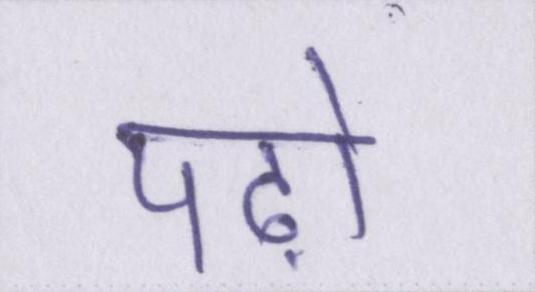 पढ़ो